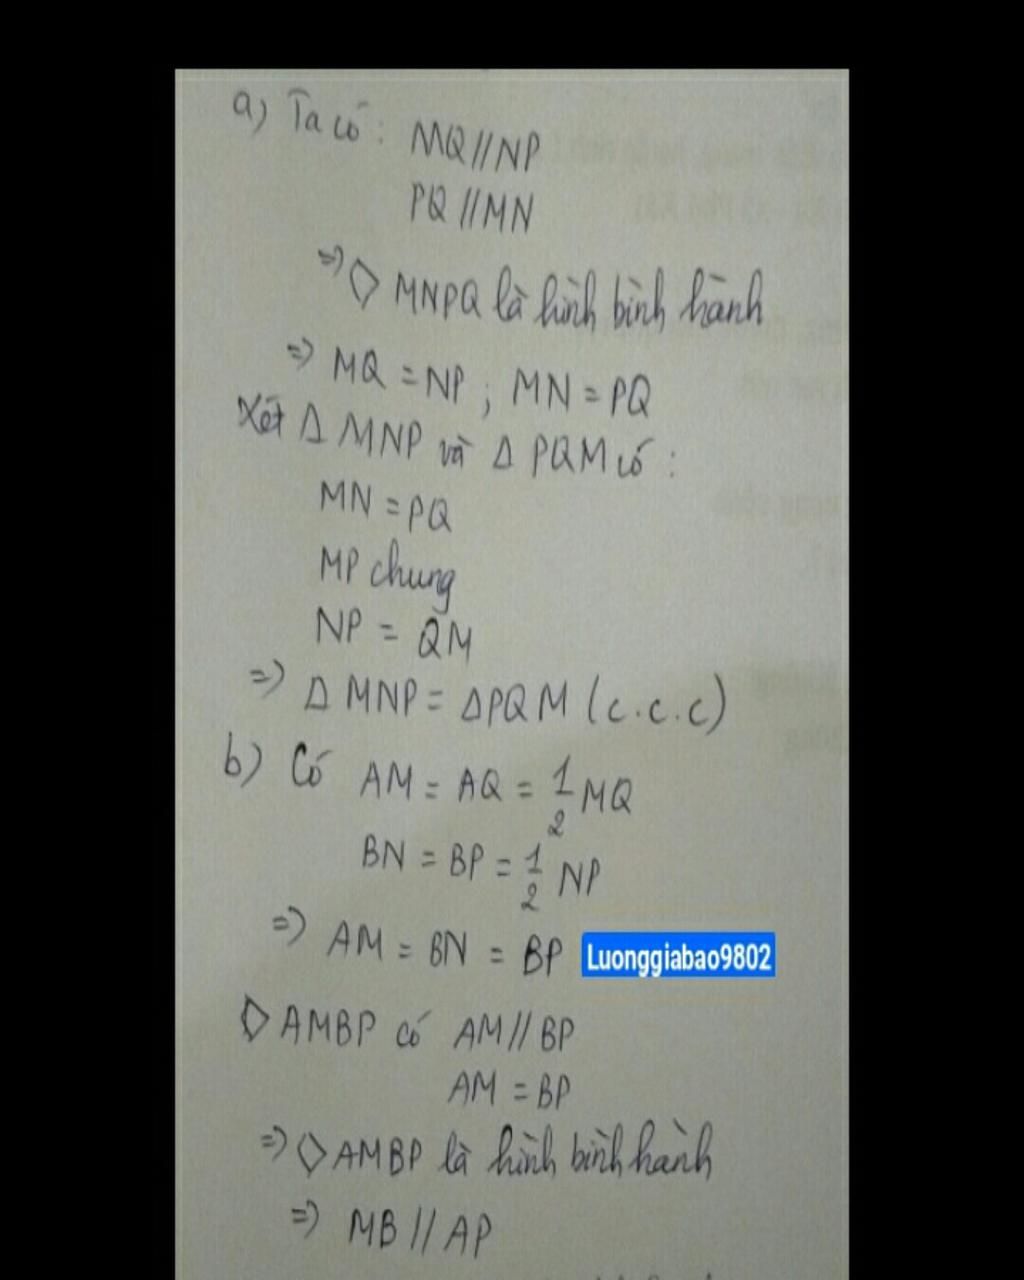 a) Ta có: MQ//NP
PQ//MN
=> ◇ MNPQ là hình bình hành
=> MQ = NP ; MN = PQ
Xét Δ MNP và Δ PQM có:
MN = PQ
MP chung
NP = QM
=> Δ MNP = ΔPQM (c.c.c)
b) Có AM = AQ = 1/2 MQ
BN = BP = 1/2 NP
=> AM = BN = BP Luonggiabao9802
◇ AMBP có AM//BP
AM = BP
=> ◇ AMBP là hình bình hành
=> MB // AP